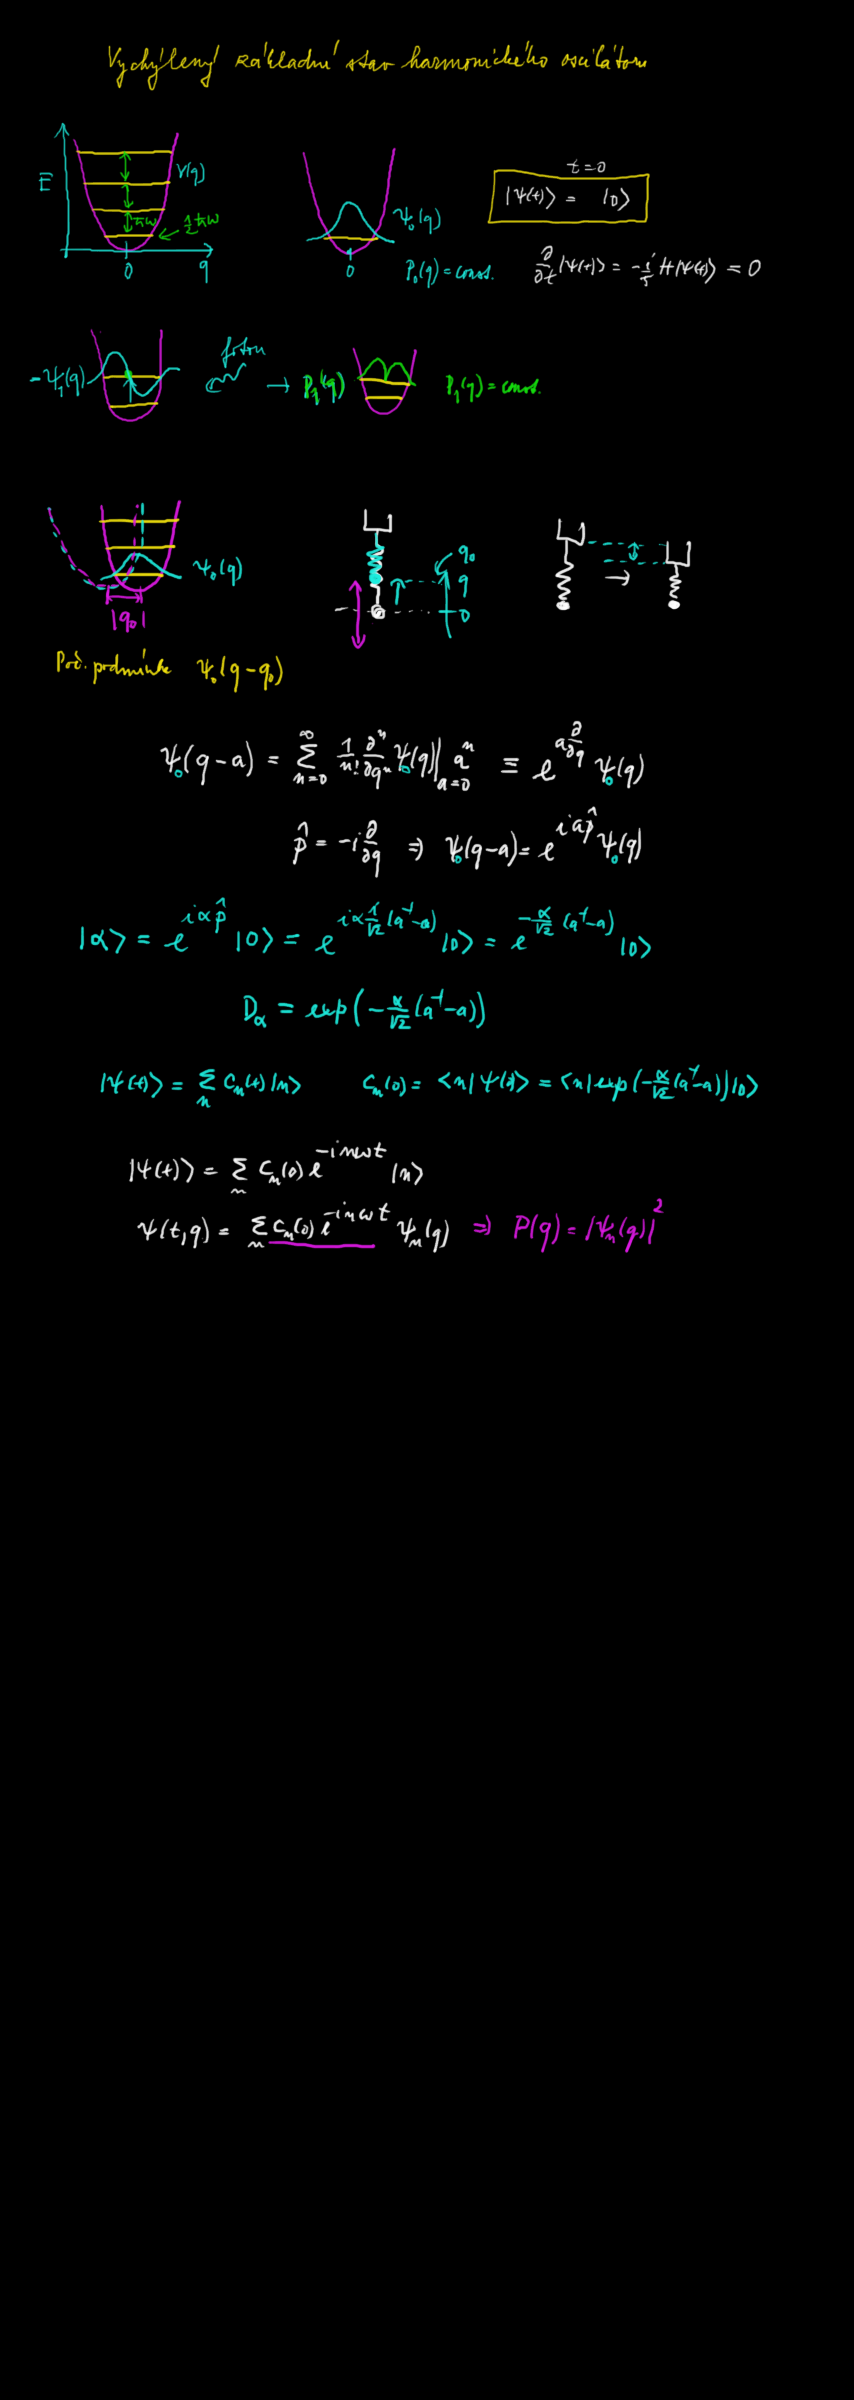 Vychýlený základní stav harmonického oscilátoru
E
V(q)
ħω
½ħω
0
q
ψ₀(q)
0
P₀(q) = const.
t=0
|ψ(t)⟩ = |0⟩
∂/∂t |ψ(t)⟩ = -i/ħ H|ψ(t)⟩ = 0
-ψ₁(q)
foton
→ P₁(q)
P₁(q) = const.
ψ₀(q)
|q₀|
q₀
q
0
Poč. podmínka ψ₀(q-q₀)
ψ₀(q-a) = ∑_{n=0}^{∞} 1/n! ∂ⁿ/∂qⁿ ψ₀(q)|_{a=0} aⁿ ≡ e^{a ∂/∂q} ψ₀(q)
p̂ = -i ∂/∂q ⇒ ψ₀(q-a) = e^{iap̂} ψ₀(q)
|α⟩ = e^{iαp̂} |0⟩ = e^{iα i/√2 (a†-a)} |0⟩ = e^{-α/√2 (a†-a)} |0⟩
D_α = exp(-α/√2 (a†-a))
|ψ(t)⟩ = ∑_n c_n(t) |n⟩ c_n(0) = ⟨n|ψ(0)⟩ = ⟨n|exp(-α/√2 (a†-a))|0⟩
|ψ(t)⟩ = ∑_n c_n(0) e^{-inωt} |n⟩
ψ(t,q) = ∑_n c_n(0) e^{-inωt} ψ_n(q) ⇒ P(q) = |ψ_n(q)|²